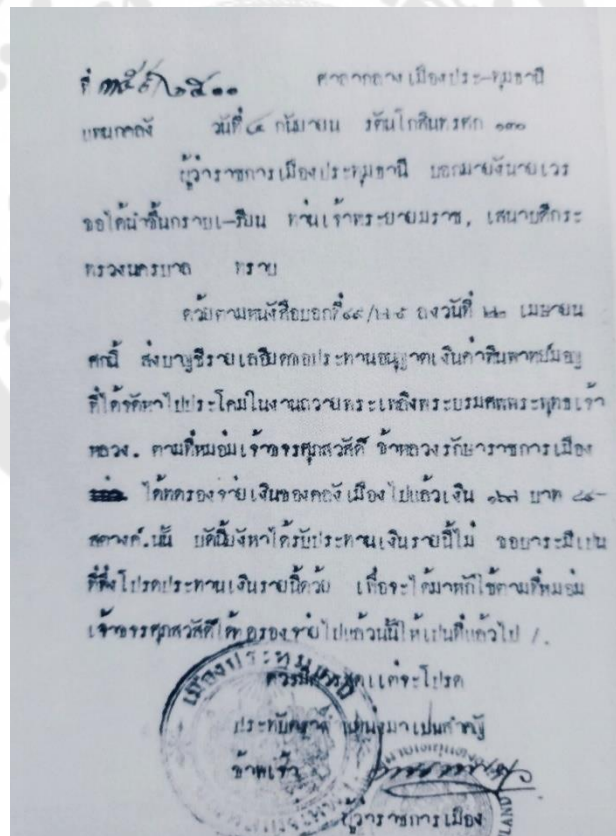 ที่ ๓๕๖/๒๕๐๐ ศาลากลางเมืองประทุมธานี
แผนกคลัง วันที่ ๔ กันยายน รัตนโกสินทรศก ๑๓๐
ผู้ว่าราชการเมืองประทุมธานี บอกมายังนายเวร
ขอได้นำขึ้นกราบเรียน ท่านเจ้าพระยายมราช, เสนาบดีกระ
ทรวงนครบาล ทราบ
ด้วยตามหนังสือบอกที่ ลงวันที่ ๒๒ เมษายน
ศกนี้ ส่งบาญชีรายเลอียดขอประทานอนุญาตเงินค่าพิณพาทย์มอญ
ที่ได้จัดหาไปประโคมในงานถวายพระเพลิงพระบรมศพพระพุทธเจ้า
หลวง. ตามที่หม่อมเจ้าจรศุภสวัสดิ์ ข้าหลวงรักษาราชการเมือง
ได้ทดรองจ่ายเงินของคลังเมืองไปแล้วเงิน บาท
สตางค์.นั้น บัดนี้ยังหาได้รับประทานเงินรายนี้ไม่ ขอบาระมีเปน
ที่พึ่งโปรดประทานเงินรายนี้ด้วย เพื่อจะได้มาหักใช้ตามที่หม่อม
เจ้าจรศุภสวัสดิ์ได้ทดรองจ่ายไปแล้วนั้นให้เปนที่แล้วไป /.
ควรมิควรสุดแต่จะโปรด
ประทับตราตำแหน่งมาเปนสำคัญ
ข้าพเจ้า
ผู้ว่าราชการเมือง
เมืองประทุมธานี